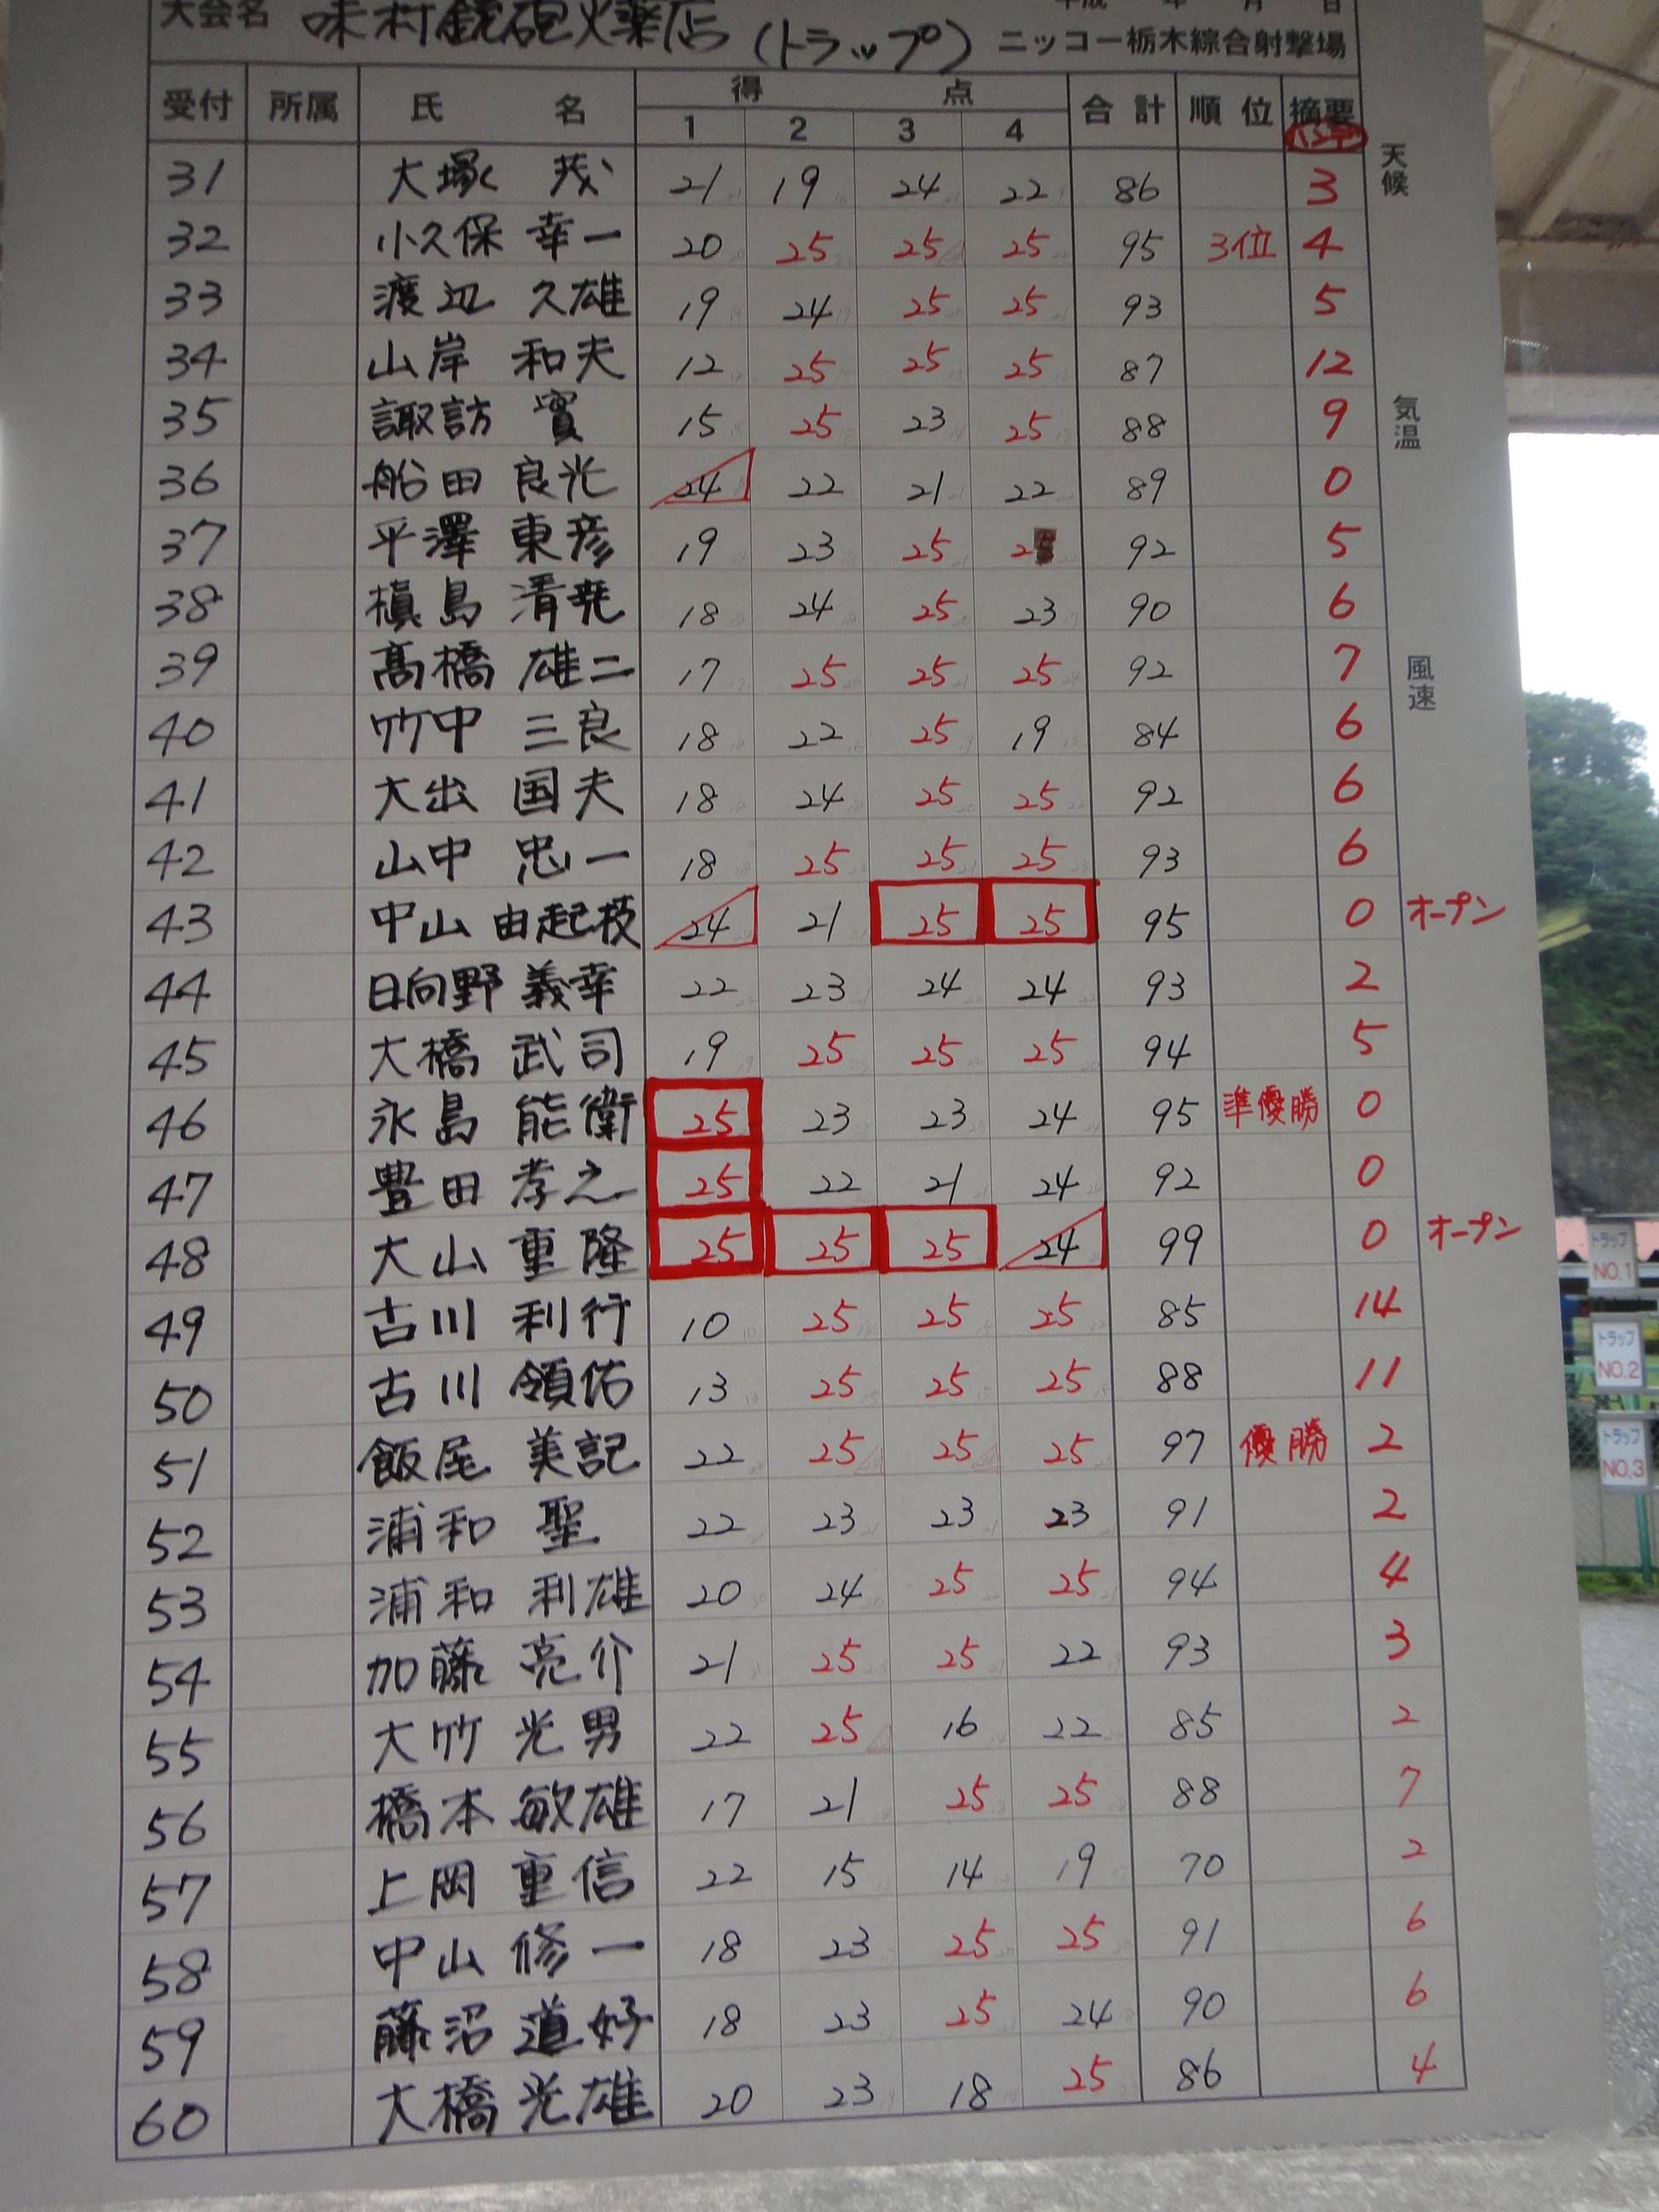 大会名 味村銃砲火薬店 (トラップ) ニッコー栃木綜合射撃場
受付 所属 氏名 得点 合計 順位 摘要
1 2 3 4 ハンデ
31 大塚 茂 21 19 24 22 86 3
32 小久保 幸一 20 25 25 25 95 3位 4
33 渡辺 久雄 19 24 25 25 93 5
34 山岸 和夫 12 25 25 25 87 12
35 諏訪 實 15 25 23 25 88 9
36 船田 良光 24 22 21 22 89 0
37 平澤 東彦 19 23 25 2 92 5
38 槇島 清尭 18 24 25 23 90 6
39 髙橋 雄二 17 25 25 25 92 7
40 竹中 三良 18 22 25 19 84 6
41 大出 国夫 18 24 25 25 92 6
42 山中 忠一 18 25 25 25 93 6
43 中山 由起枝 24 21 25 25 95 0 オープン
44 日向野 義幸 22 23 24 24 93 2
45 大橋 武司 19 25 25 25 94 5
46 永島 能衛 25 23 23 24 95 準優勝 0
47 豊田 孝之 25 22 21 24 92 0
48 大山 重隆 25 25 25 24 99 0 オープン
49 古川 利行 10 25 25 25 85 14
50 古川 領佑 13 25 25 25 88 11
51 飯尾 美記 22 25 25 25 97 優勝 2
52 浦和 聖 22 23 23 23 91 2
53 浦和 利雄 20 24 25 25 94 4
54 加藤 亮介 21 25 25 22 93 3
55 大竹 光男 22 25 16 22 85 2
56 橋本 敏雄 17 21 25 25 88 7
57 上岡 重信 22 15 14 19 70 2
58 中山 修一 18 23 25 25 91 6
59 藤沼 道好 18 23 25 24 90 6
60 大橋 光雄 20 23 18 25 86 4
天候
気温
風速
トラップ
NO.1
トラップ
NO.2
トラップ
NO.3